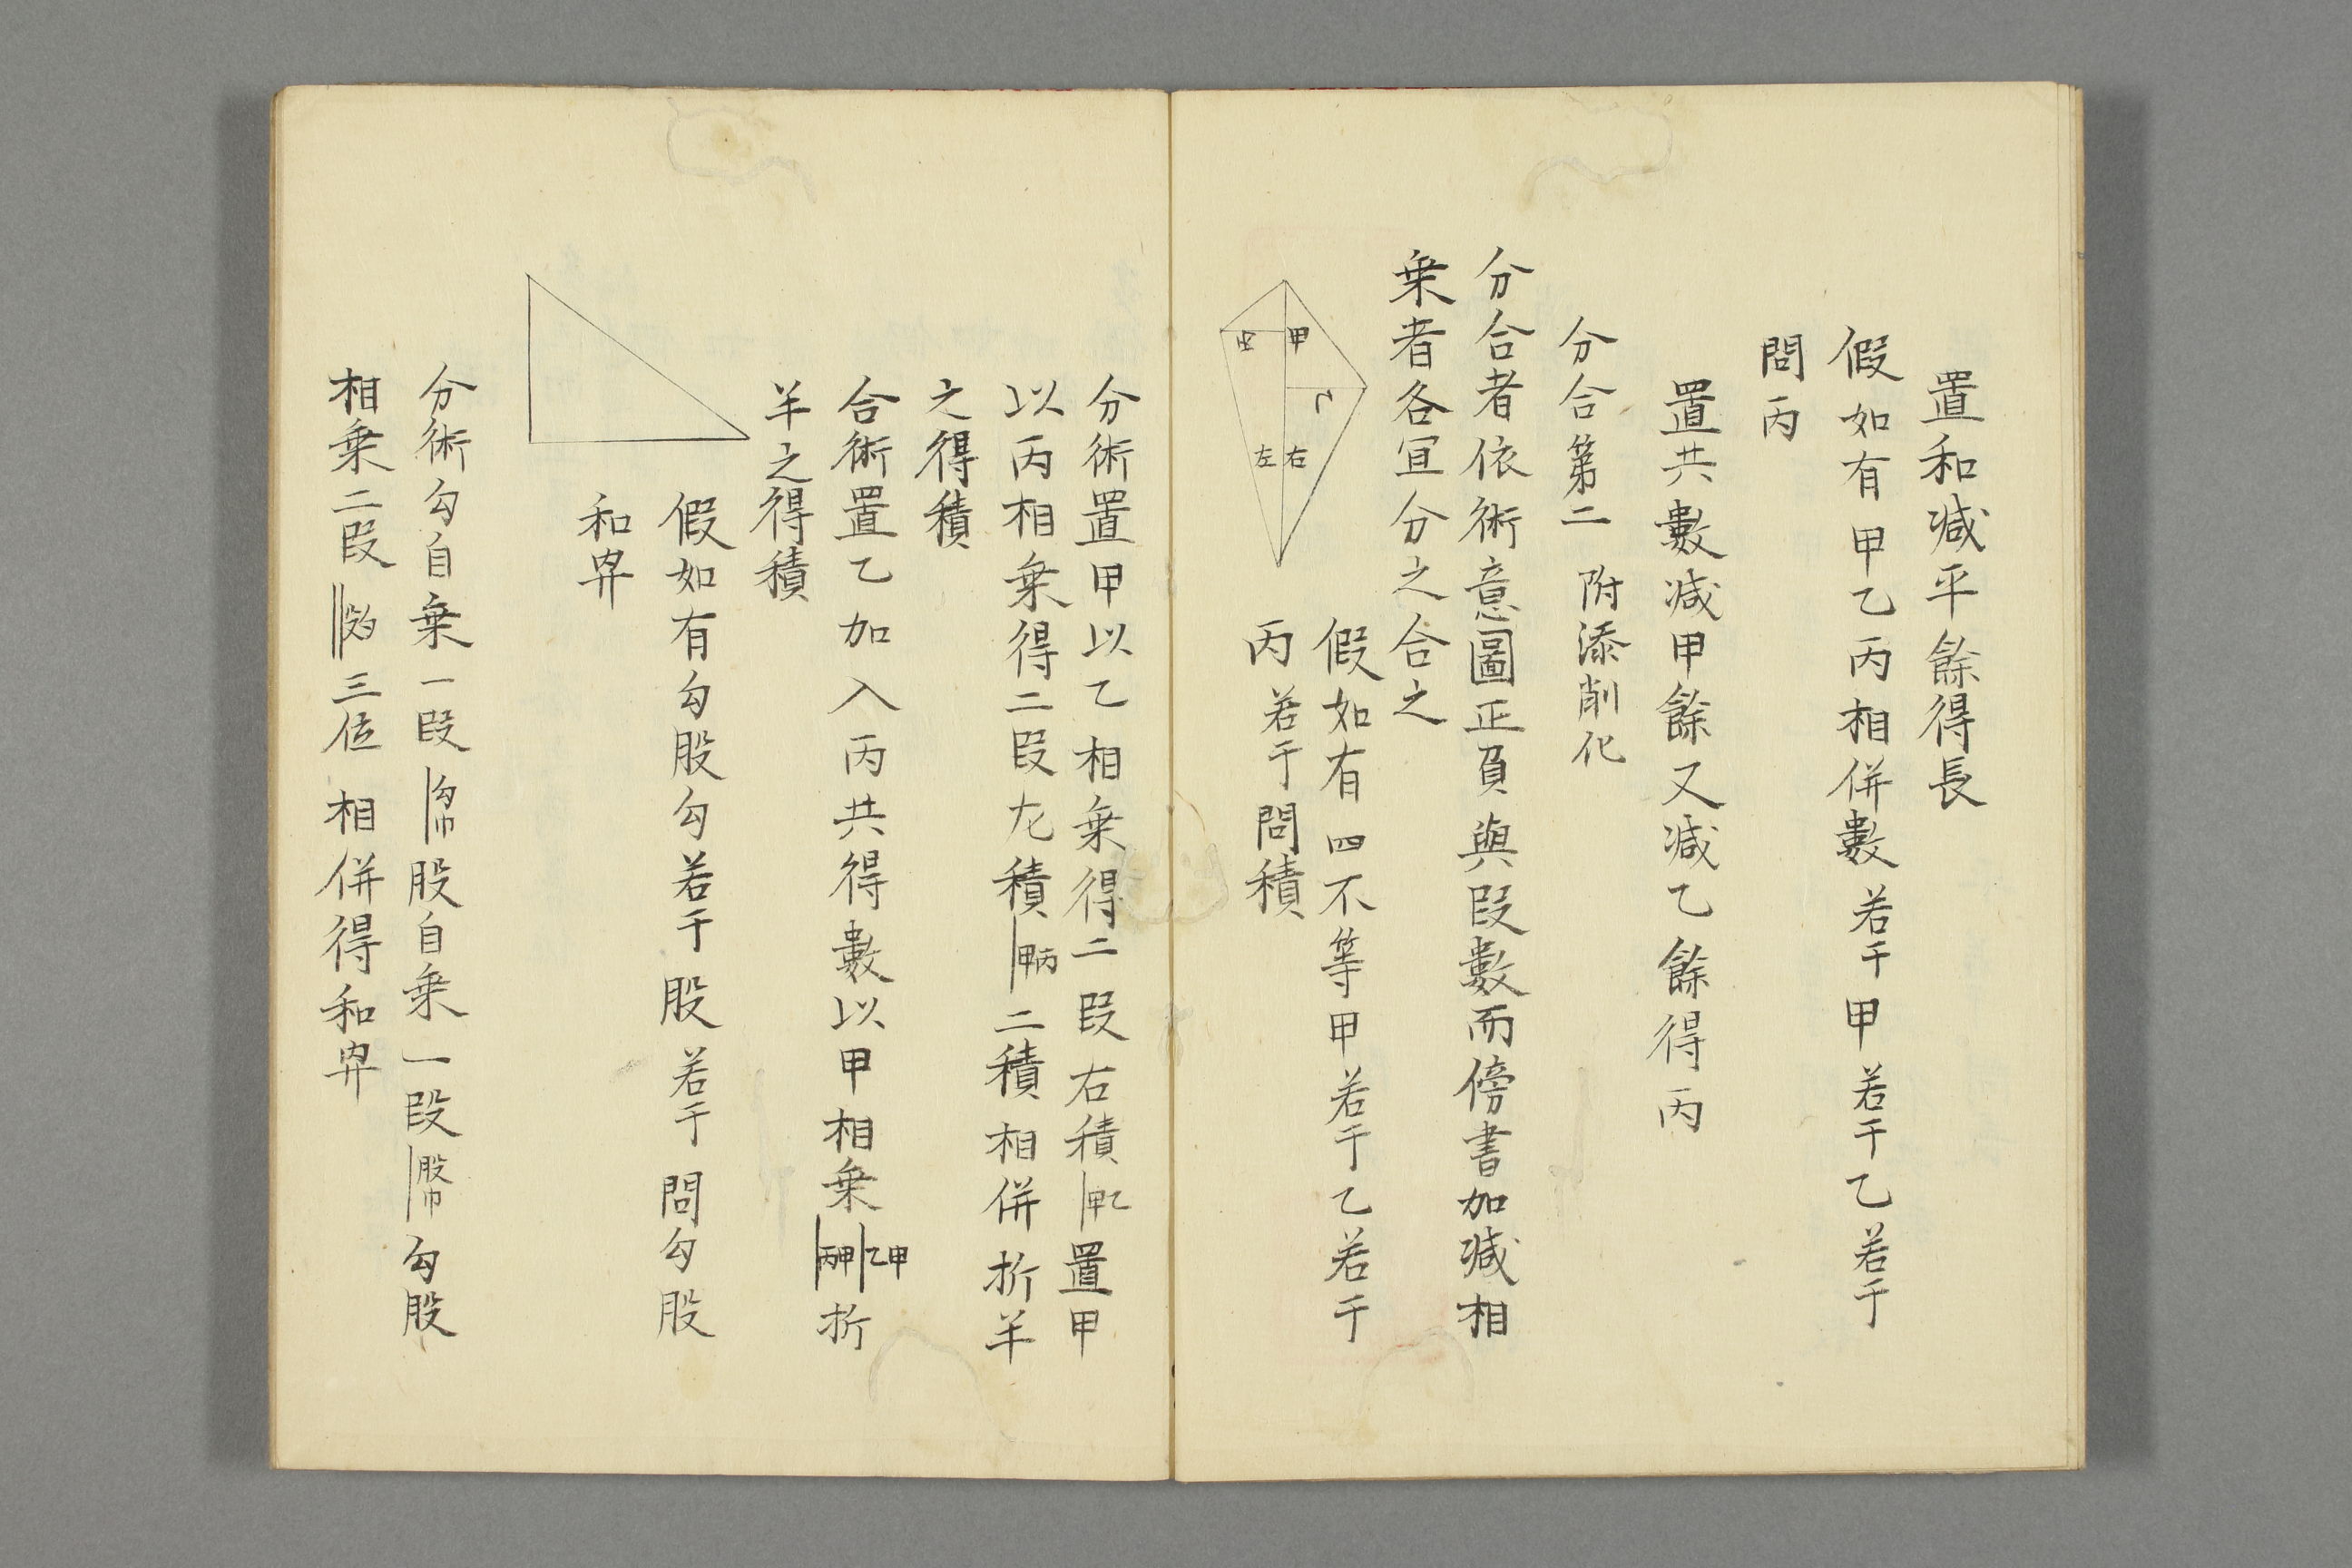 置和减平餘得長
假如有甲乙丙相併數若干甲若干乙若干
問丙
置共數减甲餘又减乙餘得丙
分合第二 附添削化
分合者依術意圖正負與段數而傍書加减相
乗者各宜分之合之
甲
右
左
假如有四不等甲若干乙若干
丙若干問積
分術置甲以乙相乗得二段右積|甲乙置甲
以丙相乗得二段左積|甲丙二積相併折半
之得積
合術置乙加入丙共得數以甲相乗|乙甲|丙甲折
半之得積
假如有勾股勾若干股若干問勾股
和冪
分術勾自乗一段|勾巾股自乗一段|股巾勾股
相乗二段||勾股三位相併得和冪